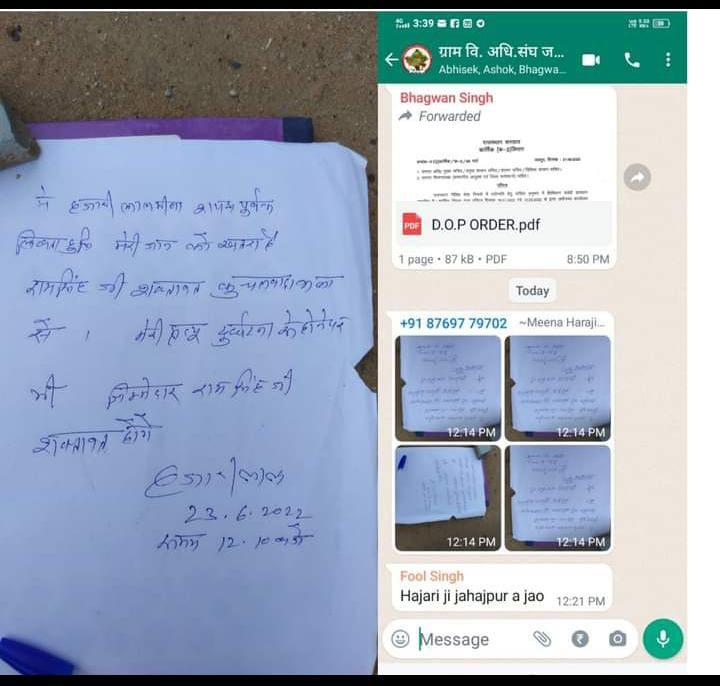 मे हजारी लाल मीना शपथ पूर्वक
लिखता हूँ कि मेरी जान को खतरा है
रामसिंह जी शक्तावत कुचलवाड़ा
से । मेरी हर दुर्घटना के होने पर
भी जिम्मेदार राम सिंह जी
शक्तावत होंगे
हजारीलाल
23.6.2022
समय 12.10 बजे
3:39
ग्राम वि. अधि.संघ ज...
Abhisek, Ashok, Bhagwa...
Bhagwan Singh
Forwarded
राजस्थान सरकार
PDF D.O.P ORDER.pdf
1 page • 87 kB • PDF 8:50 PM
Today
+91 87697 79702 ~Meena Haraji...
12:14 PM 12:14 PM
12:14 PM 12:14 PM
Fool Singh
Hajari ji jahajpur a jao 12:21 PM
Message